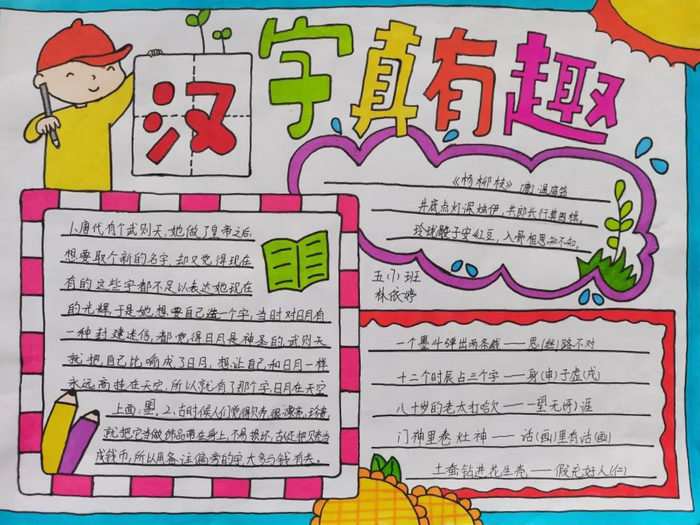 汉字真有趣
《杨柳枝》唐 温庭筠
井底点灯深烛伊,共郎长行莫围棋。
玲珑骰子安红豆,入骨相思知不知。
五(7)班
林依婷
1、唐代有个武则天,她做了皇帝之后,
想要取个新的名字,却又觉得现在
有的这些字都不足以表达她现在
的光辉,于是她想要自己造一个字,当时对日月有
一种封建迷信,都觉得日月是神圣的,武则天
就把自己比喻成了日月,想让自己和日月一样
永远高挂在天空,所以就有了那个字,日月在天空
上面,曌。2、古时候人们觉得贝壳很漂亮、珍贵
就把它当做饰品带在身上,不易损坏,古代把贝壳当
成钱币,所以用
旁的字大多与钱有关。
一个墨斗弹出两条线——思(丝)路不对
十二个时辰占三个字——身(申)子虚(戌)
八十岁的老太打哈欠——一望无牙(涯)
门神里卷灶神——话(画)里有话(画)
土蚕钻进花生壳——假充好人(仁)